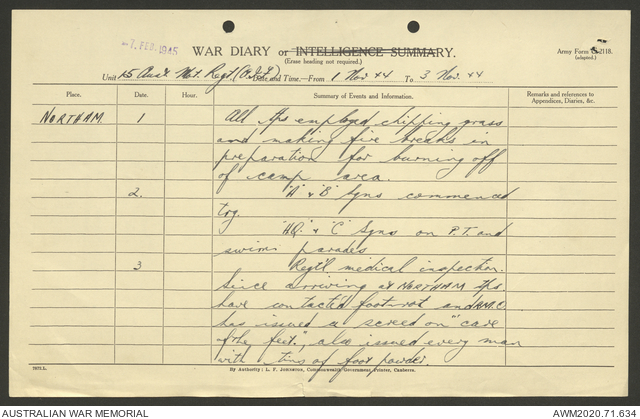 -7. FEB. 1945
WAR DIARY or INTELLIGENCE SUMMARY.
(Erase heading not required.)
Army Form C. 2118.
(adapted.)
Unit 25 Aust. Mot. Regt. (A.I.F.) Date and Time.—From 1 Nov. 44 To 3 Nov. 44
Place. Date. Hour. Summary of Events and Information. Remarks and references to
Appendices, Diaries, &c.
NORTHAM. 1 All tps employed chipping grass
and making fire breaks in
preparation for burning off
of camp area.
2. "A" & "B" Sqns commenced
trg.
"HQ" & "C" Sqns on P.T. and
swim parades
3 Regt'l medical inspection.
Since arriving at NORTHAM tps
have contacted foot-rot and R.M.O.
has issued a screed on "care
of the feet", also issued every man
with tins of foot powder.
7873.L.
By Authority: L. F. JOHNSTON, Commonwealth Government Printer, Canberra.
AUSTRALIAN WAR MEMORIAL
AWM2020.71.634